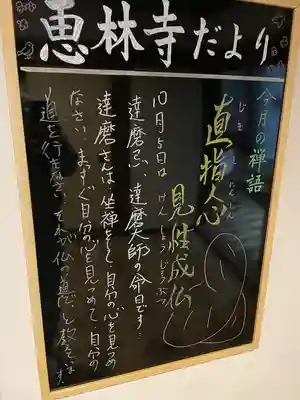 恵林寺だより
今月の禅語
直指人心
じきしにんしん
見性成仏
けんしょうじょうぶつ
10月5日は
達磨忌、達磨大師の命日です…
達磨さんは坐禅をして自分の心を見つめ
なさい。まっすぐ自分の心を見つめて、自分の
道を行きなさい。それが仏の道だと教えます